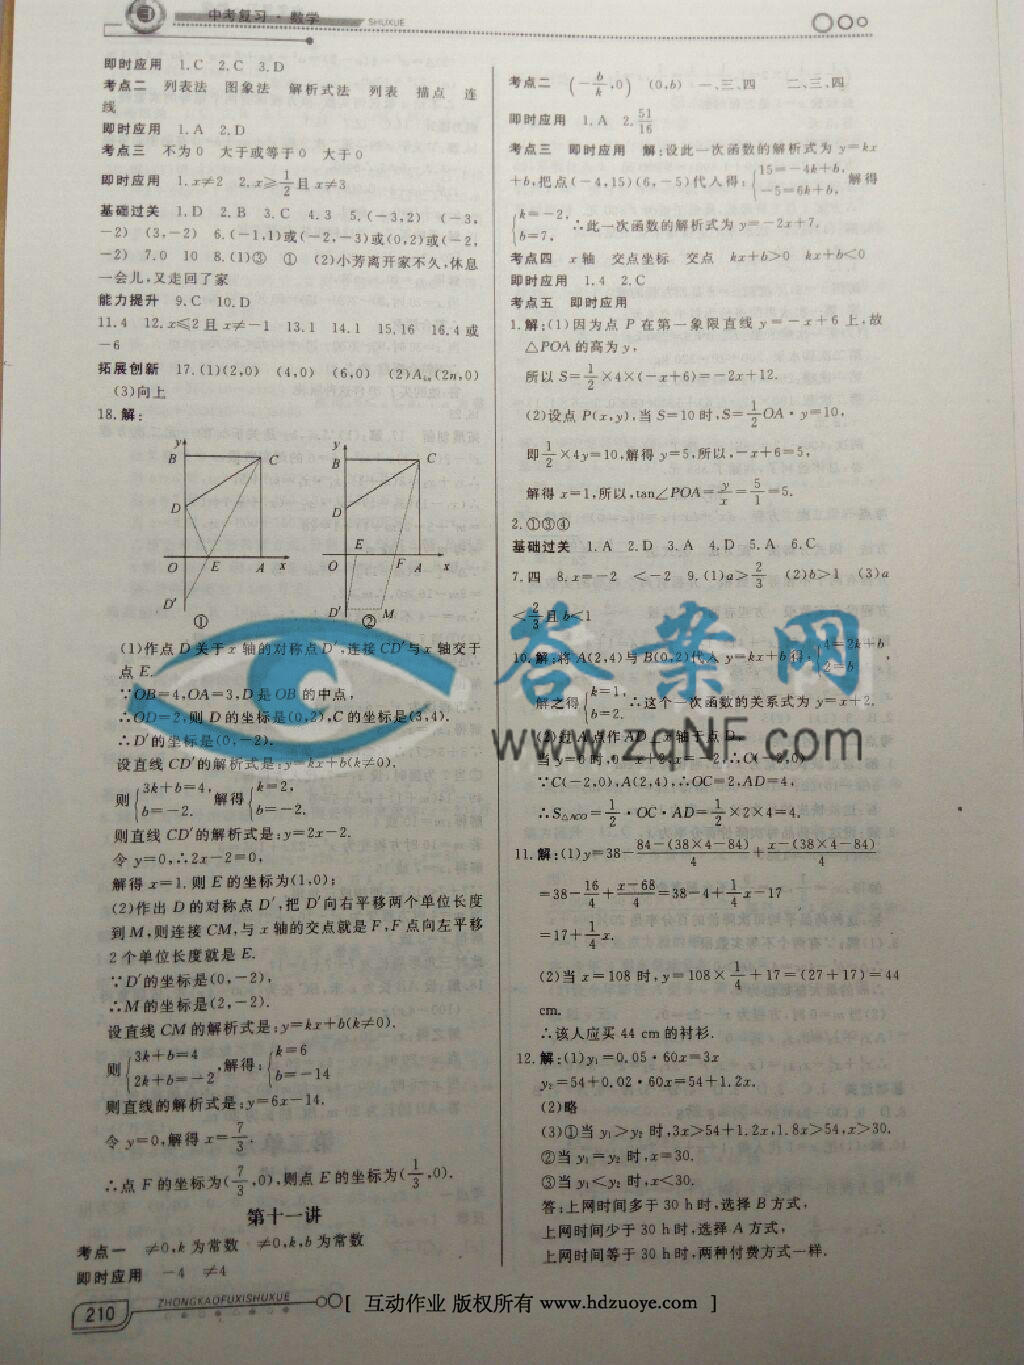 中考复习·数学
SHUXUE
即时应用 1.C 2.C 3.D
考点二 列表法 图象法 解析式法 列表 描点 连
线
即时应用 1.A 2.D
考点三 不为0 大于或等于0 大于0
即时应用 1.x≠2 2.x≥1/2且x≠3
基础过关 1.D 2.B 3.C 4.3 5.(-3,2) (-3,
-2) (3,-2) 6.(-1,1)或(-2,-3)或(0,2)或(-2,
-2) 7.0 10 8.(1)③ ① (2)小芳离开家不久,休息
一会儿,又走回了家
能力提升 9.C 10.D
11.4 12.x≤2且x≠-1 13.1 14.1 15.16 16.4或
-6
拓展创新 17.(1)(2,0) (4,0) (6,0) (2)A₄ₙ(2n,0)
(3)向上
18.解:
y B C D O E A x D′ ①
y B C D E O F A x D′ M ②
(1)作点D关于x轴的对称点D′,连接CD′与x轴交于
点E.
∵OB=4,OA=3,D是OB的中点,
∴OD=2,则D的坐标是(0,2),C的坐标是(3,4),
∴D′的坐标是(0,-2).
设直线CD′的解析式是:y=kx+b(k≠0),
则{3k+b=4, b=-2. 解得{k=2, b=-2.
则直线CD′的解析式是:y=2x-2.
令y=0,∴2x-2=0,
解得x=1.则E的坐标为(1,0);
(2)作出D的对称点D′,把D′向右平移两个单位长度
到M,则连接CM,与x轴的交点就是F,F点向左平移
2个单位长度就是E.
∵D′的坐标是(0,-2),
∴M的坐标是(2,-2).
设直线CM的解析式是:y=kx+b(k≠0).
则{3k+b=4 2k+b=-2,解得:{k=6 b=-14
则直线的解析式是:y=6x-14,
令y=0,解得x=7/3.
∴点F的坐标为(7/3,0),则点E的坐标为(1/3,0).
第十一讲
考点一 ≠0,k为常数 ≠0,k,b为常数
即时应用 -4 ≠4
考点二 (-b/k,0) (0,b) 一、三、四 二、三、四
即时应用 1.A 2.51/16
考点三 即时应用 解:设此一次函数的解析式为y=kx
+b,把点(-4,15)(6,-5)代入得:{15=-4k+b, -5=6k+b, 解得
{k=-2, b=7, ∴此一次函数的解析式为y=-2x+7.
考点四 x轴 交点坐标 交点 kx+b>0 kx+b<0
即时应用 1.4 2.C
考点五 即时应用
1.解:(1)因为点P在第一象限直线y=-x+6上,故
△POA的高为y,
所以S=1/2×4×(-x+6)=-2x+12.
(2)设点P(x,y),当S=10时,S=1/2OA·y=10,
即1/2×4y=10,解得y=5,所以,-x+6=5,
解得x=1,所以,tan∠POA=y/x=5/1=5.
2.①③④
基础过关 1.A 2.D 3.A 4.D 5.A 6.C
7.四 8.x=-2 <-2 9.(1)a>2/3 (2)b>1 (3)a
<2/3且b<1
10.解:将A(2,4)与B(0,2)代入y=kx+b得:{4=2k+b 2=b,
解之得{k=1, b=2. ∴这个一次函数的关系式为y=x+2.
(2)过A点作AD⊥x轴于点D,
当y=0时,0=x+2,x=-2,∴C(-2,0)
∵C(-2,0),A(2,4),∴OC=2,AD=4,
∴S△ACO=1/2·OC·AD=1/2×2×4=4.
11.解:(1)y=38-84-(38×4-84)/4+x-(38×4-84)/4
=38-16/4+x-68/4=38-4+1/4x-17
=17+1/4x.
(2)当x=108时,y=108×1/4+17=(27+17)=44
cm.
∴该人应买44 cm的衬衫.
12.解:(1)y₁=0.05·60x=3x
y₂=54+0.02·60x=54+1.2x.
(2)略
(3)①当y₁>y₂时,3x>54+1.2x,1.8x>54,x>30.
②当y₁=y₂时,x=30.
③当y₁<y₂时,x<30.
答:上网时间多于30 h时,选择B方式,
上网时间少于30 h时,选择A方式,
上网时间等于30 h时,两种付费方式一样.
答案网
www.zqNF.com
210
ZHONGKAOFUXISHUXUE
[ 互动作业 版权所有 www.hdzuoye.com ]